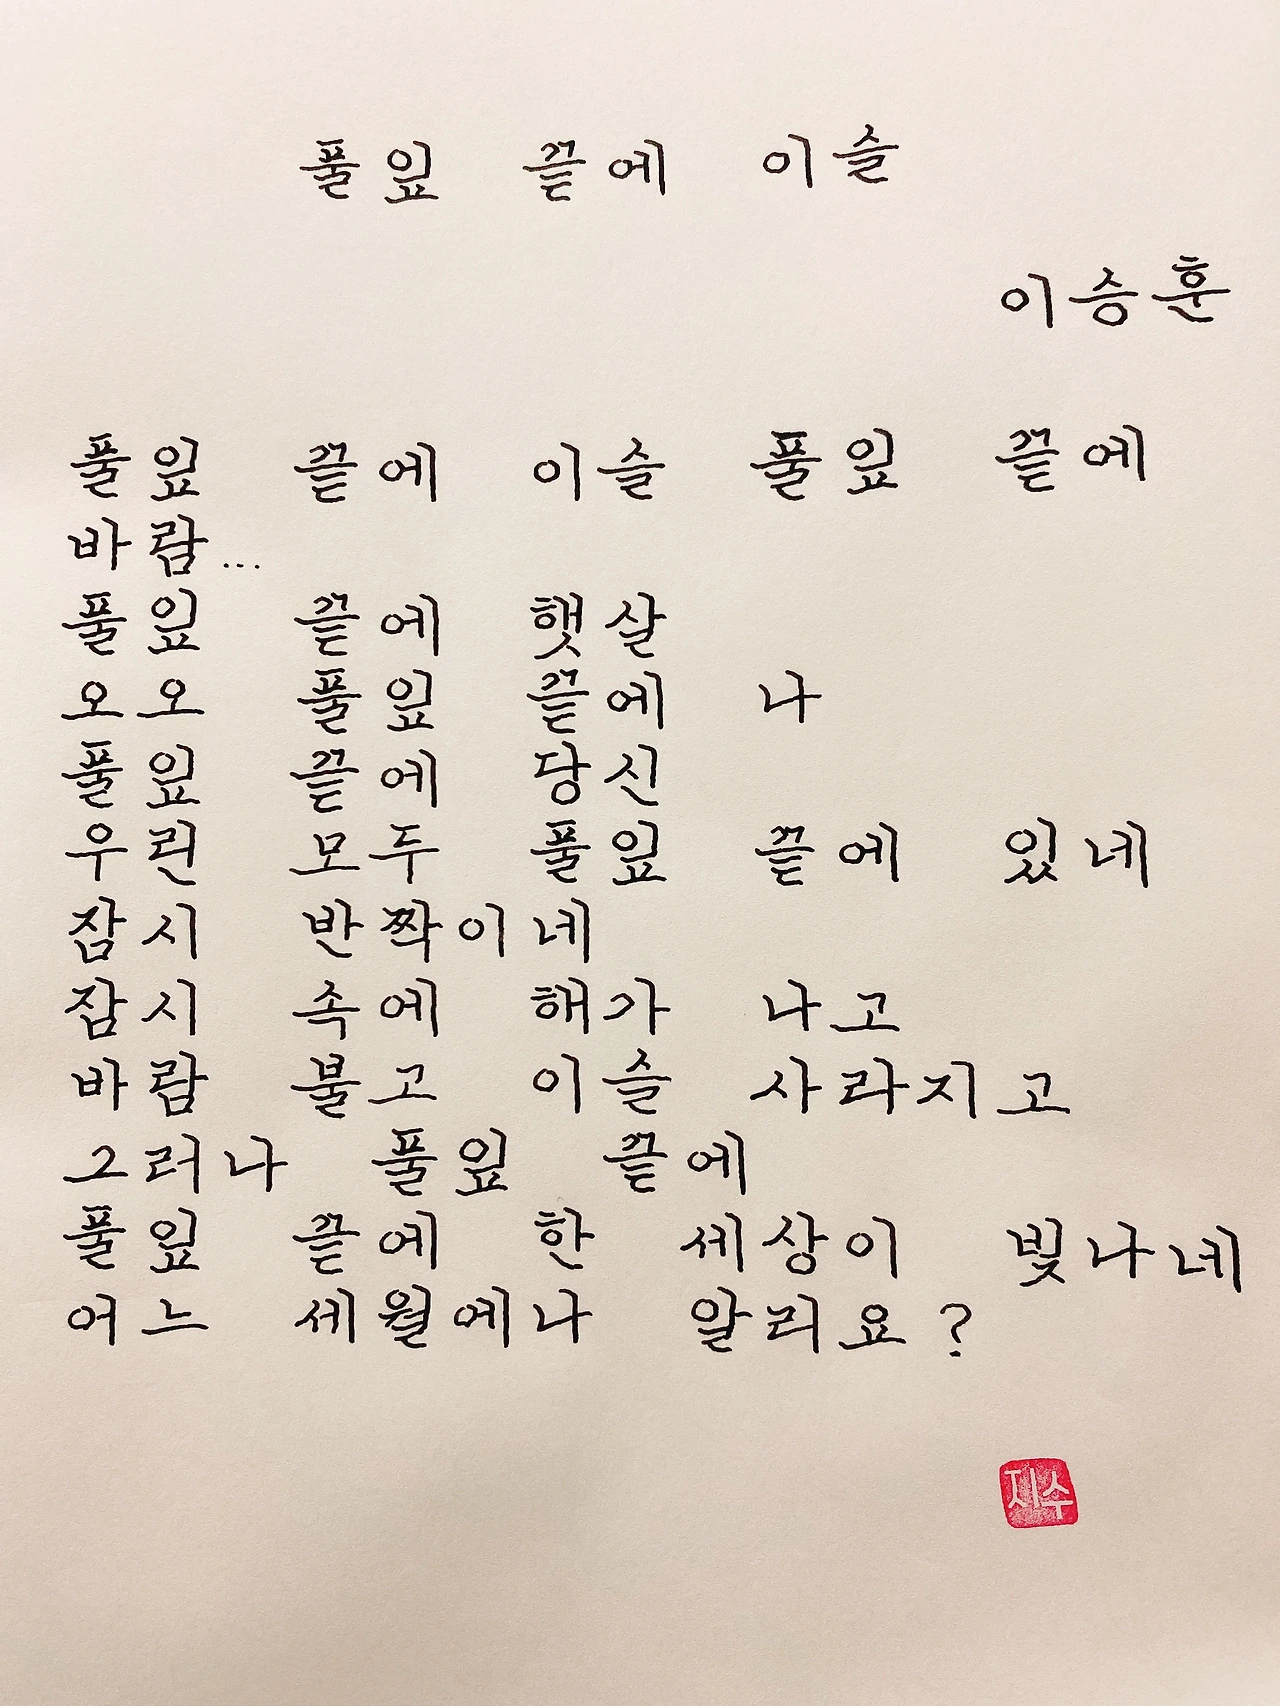 풀잎 끝에 이슬
이승훈
풀잎 끝에 이슬 풀잎 끝에
바람...
풀잎 끝에 햇살
오오 풀잎 끝에 나
풀잎 끝에 당신
우린 모두 풀잎 끝에 있네
잠시 반짝이네
잠시 속에 해가 나고
바람 불고 이슬 사라지고
그러나 풀잎 끝에
풀잎 끝에 한 세상이 빛나네
어느 세월에나 알리요?
지수